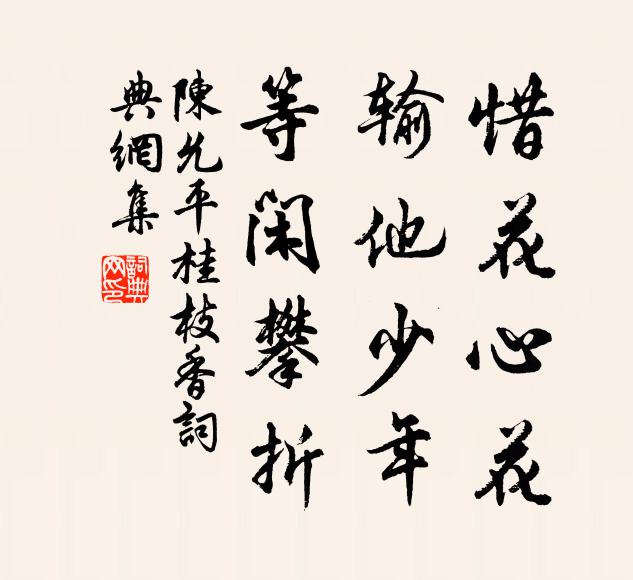 惜花心花
输他少年
等闲攀折
陳允平桂枝香詞
典網集
詞典
网印